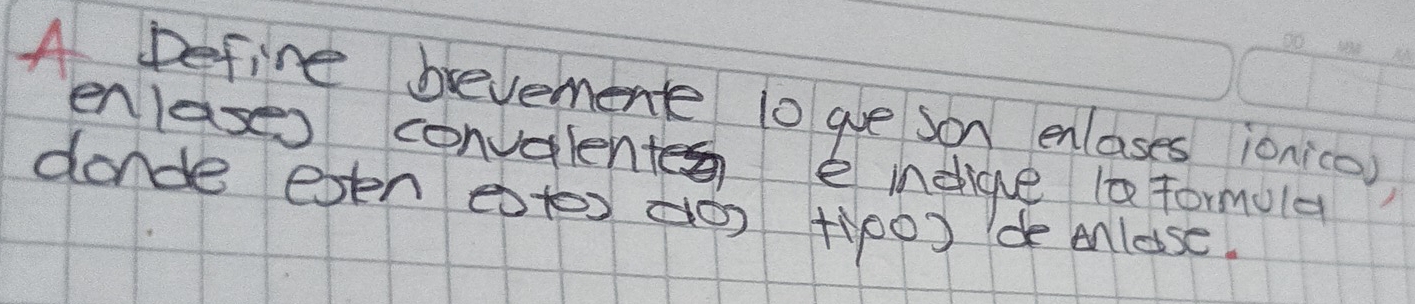 A Define brevemente lo que son enlases ionicos,
enlases convalentes e indique la formula
donde esten estos dos tipos de enlase.